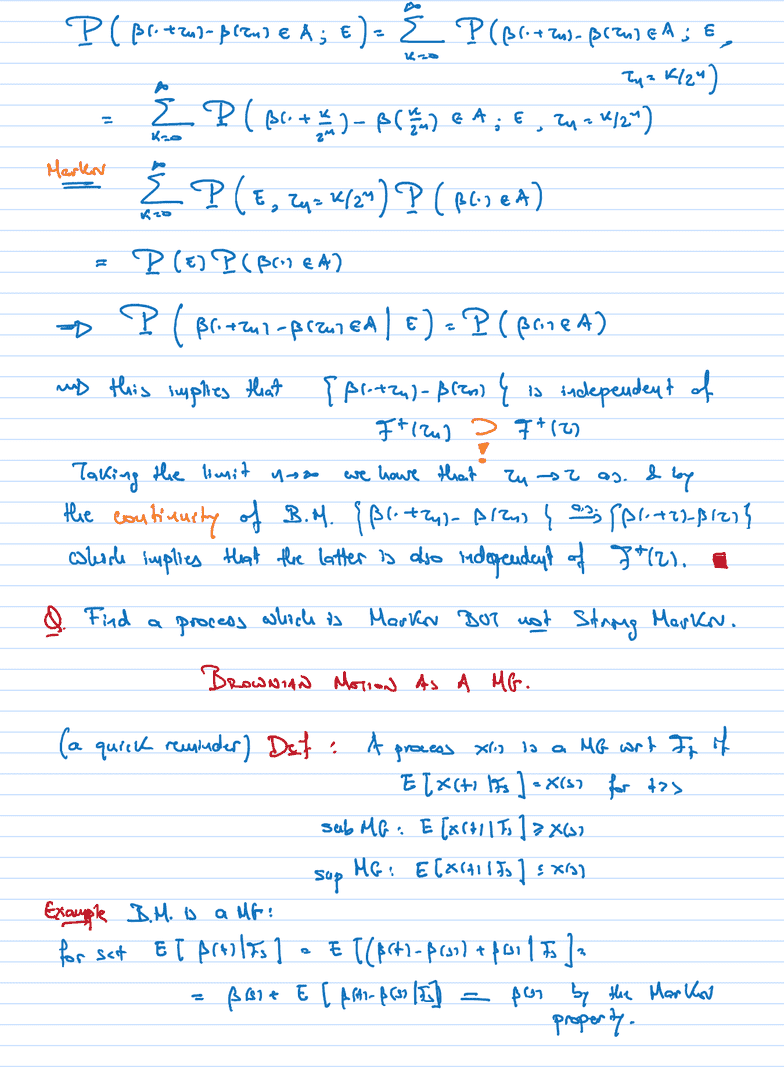 P( β(·+τn)-β(τn) ∈ A ; E ) = ∑_{k=0}^∞ P( β(·+τn)-β(τn) ∈ A ; E ,
τn = k/2^n )
= ∑_{k=0}^∞ P( β(·+k/2^n) - β(k/2^n) ∈ A ; E , τn = k/2^n )
Markov ∑_{k=0}^∞ P( E, τn = k/2^n ) P( β(·) ∈ A )
= P(E) P( β(·) ∈ A )
⇒ P( β(·+τn)-β(τn) ∈ A | E ) = P( β(·) ∈ A )
⇝ this implies that { β(·+τn)-β(τn) } is independent of
F⁺(τn) ⊃ ! F⁺(τ)
Taking the limit n→∞ we have that τn → τ as. & by
the continuity of B.M. { β(·+τn)- β(τn) } a.s.→ { β(·+τ)-β(τ) }
which implies that the latter is also independent of F⁺(τ). ■
Q. Find a process which is Markov BUT not Strong Markov.
BROWNIAN MOTION AS A MG.
(a quick reminder) Def : A process X(·) is a MG wrt F_t if
E[X(t) | F_s] = X(s) for t>s
sub MG : E[X(t) | F_s] ≥ X(s)
sup MG : E[X(t) | F_s] ≤ X(s)
Example B.M. is a MG:
for s<t E[ β(t) | F_s ] = E[ (β(t)-β(s)) + β(s) | F_s ] =
= β(s) + E[ β(t)-β(s) | F_s ] = β(s) by the Markov
property.